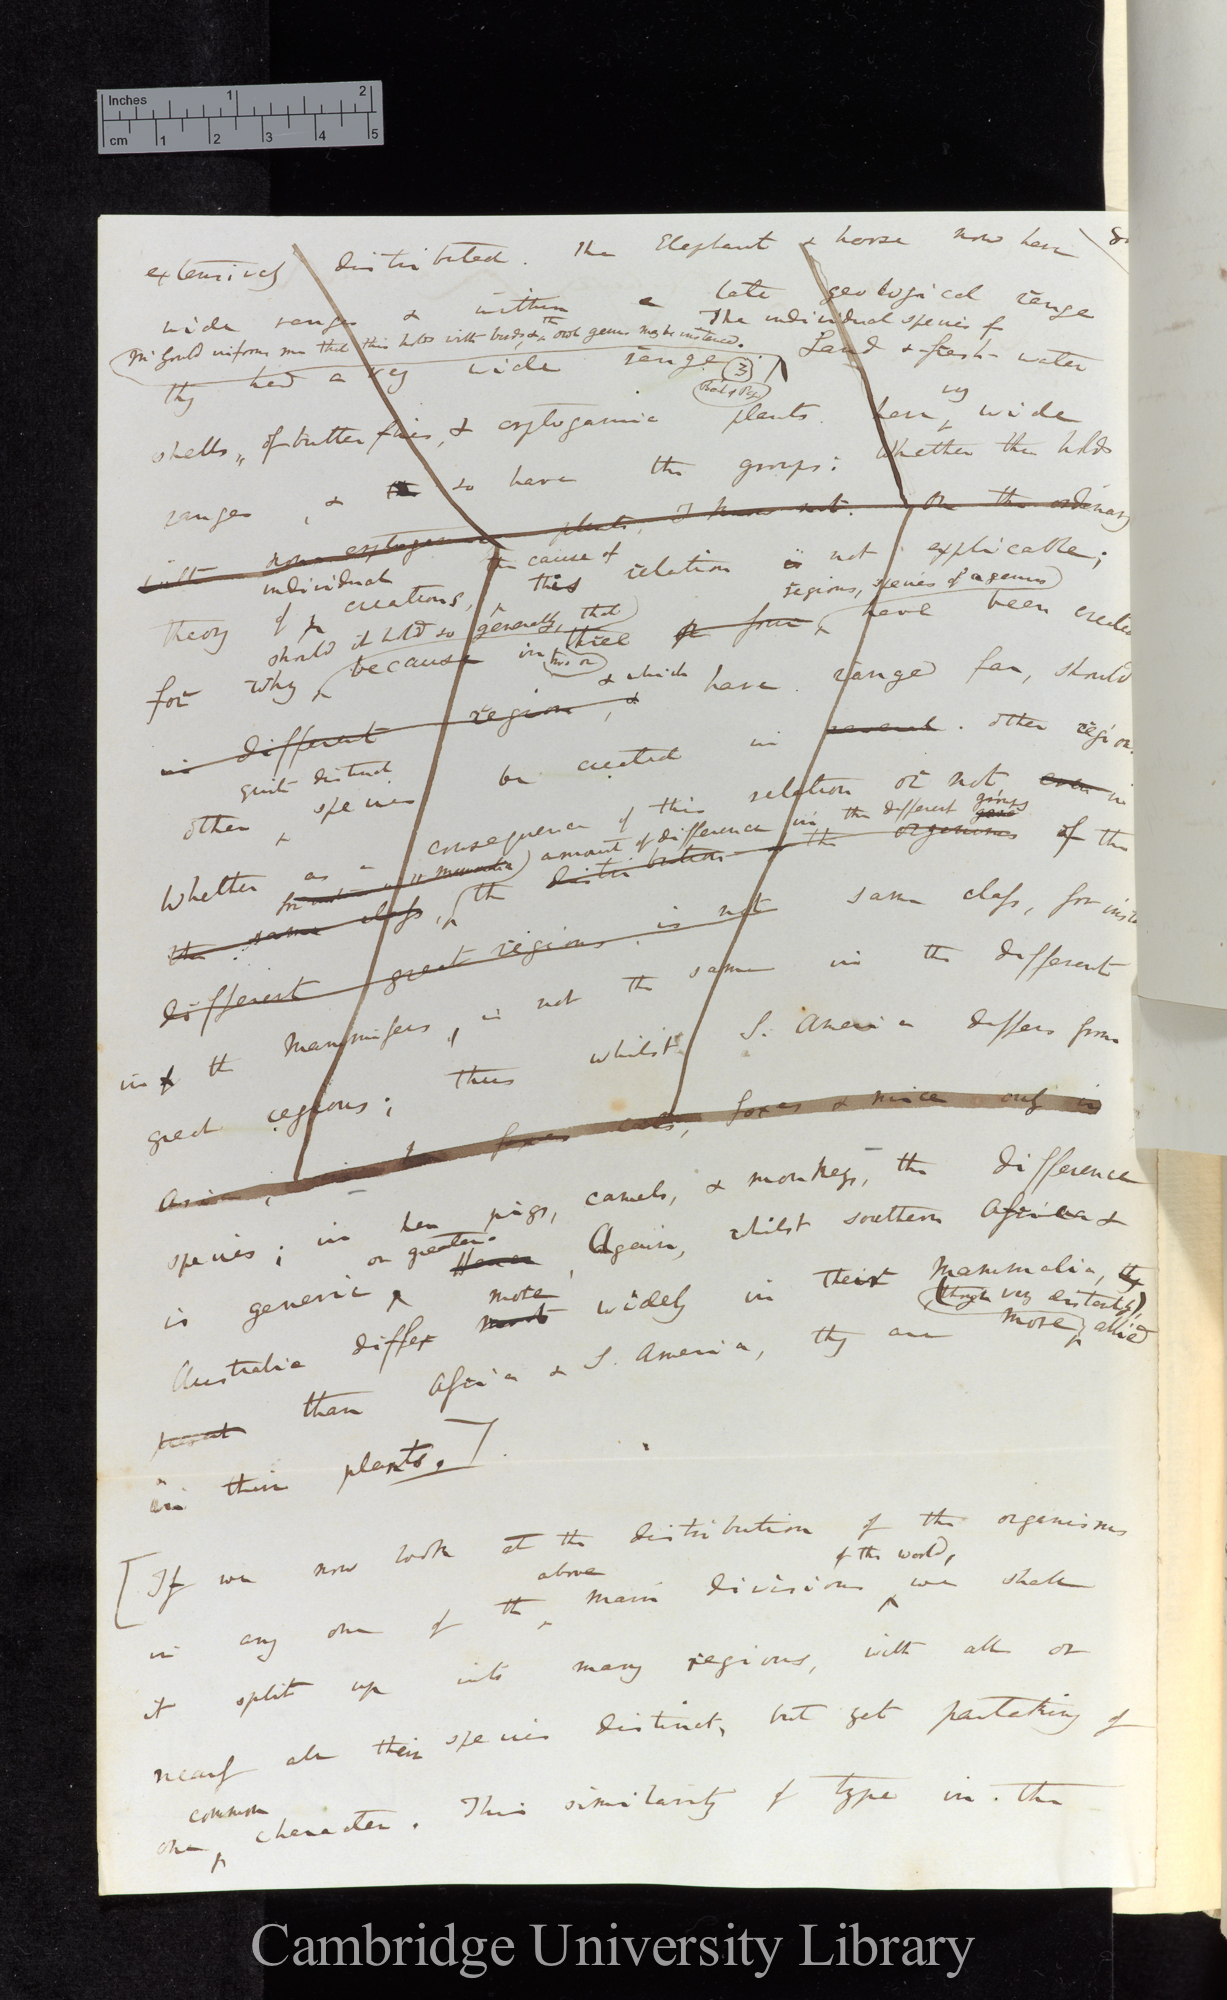 Inches 1 2
cm 1 2 3 4 5
extensively distributed. The Elephant & horse now have
wide range & within a late geological range
The individual species of
Mr Gould informs me that this holds with birds, & the owl genus may be instanced.
they had a very wide range (3). Land & fresh-water
shells, of butterflies, & cryptogamic plants have very wide
ranges, & so have the groups: Whether this holds
with non-cryptogamic plants, I know not. On the ordinary
individual the cause of
theory of creations, this relation is not explicable;
should it hold so generally, that regions, species of a genus
for why, because in two or three or four, have been created
in different region, & which have ranged far, should
quite distinct
other species be created in several other regions.
Whether as a consequence of this relation or not even in
amount of difference in the different groups
the same class, the distribution in the organisms of the
different great regions is not same class, for inst
in the Mammifers, is not the same in the different
great regions; thus whilst S. America differs from
Asia, in foxes cats, foxes & mice only in
species; in her pigs, camels, & monkeys, the difference
is generic or greater. Hence Again, whilst southern Africa &
Australia differ more most widely in their Mammalia, they
(though very distantly),
than Africa & S. America, they are more allied
in their plants.]
[If we now look at the distribution of the organisms
in any one of the above main divisions of the world, we shall
it split up into many regions, with all or
nearly all their species distinct, but yet partaking of
one common character. This similarity of type in the
Cambridge University Library